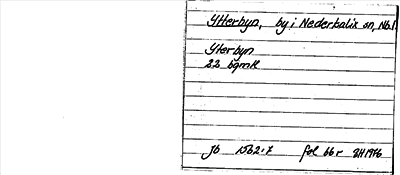 Ytterbyn, by i Nederkalix sn, Nb.l
Yterbyn
22 bgmt
Jb 1562:7 fol 66 r SH 1976